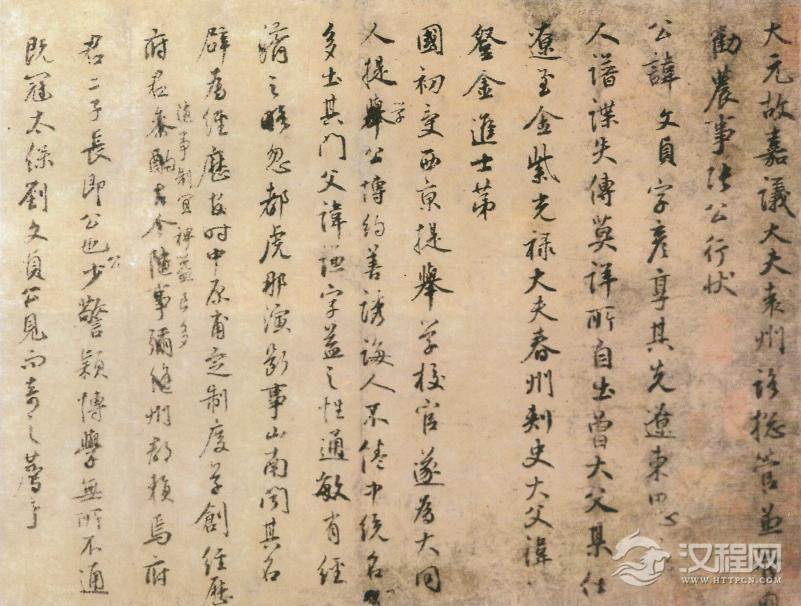 大元故嘉議大夫袁州路總管兼
勸農事張公行狀
公諱文貞字彥享其先遼東
人譜諜失傳莫詳所自出曾大父某仕
遼至金紫光禄大夫春州刾史大父諱
登金進士第
國初受西京提舉学校官遂爲大同
人提舉学公博約善誘誨人不倦中統名公
多出其門父諱字益之性通敏有經
濟之略忽都虎那演断事山南聞其名
辟爲經歷於時中原甫定制度草創經歷
随事制宜裨益良多
府君參酌古今随事彌縫州郡頼焉府
君二子長即公也少公警穎博學無所不通
既冠太保劉文貞公見而奇之薦于
汉程网
WWW.HTTPCN.COM